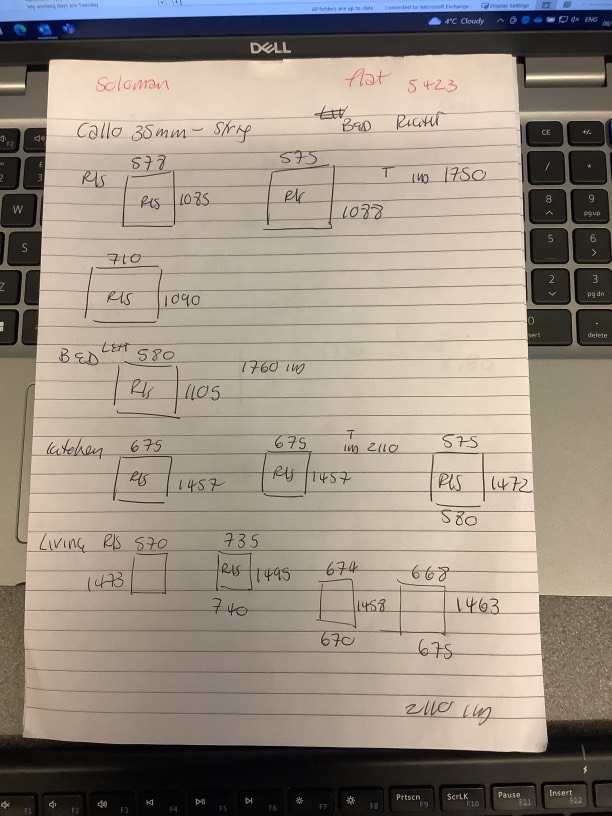 My working days are Tuesday
All folders are up to date Connected to: Microsoft Exchange Display Settings
4°C Cloudy ENG
DELL
Soloman flat 5423
Callo 35mm - string BED RIGHT
R/S 578 575 T 1750
R/S 1085 R/S 1088
710
R/S 1090
BED LEFT 580 1760
R/S 1105
Kitchen 675 675 T 2110 575
R/S 1457 R/S 1457 R/S 1472
580
LIVING R/S 570 735 674 668
1473 R/S 1495 1458 1463
740 670 675
2110
CE +/-
/ *
8 9
pg up
5 6
2 3
pg dn
0
delete
W
S
Z
F1 F2 F3 F4 F5 F6 F7 F8 Prtscn F9 ScrLK F10 Pause F11 Insert F12